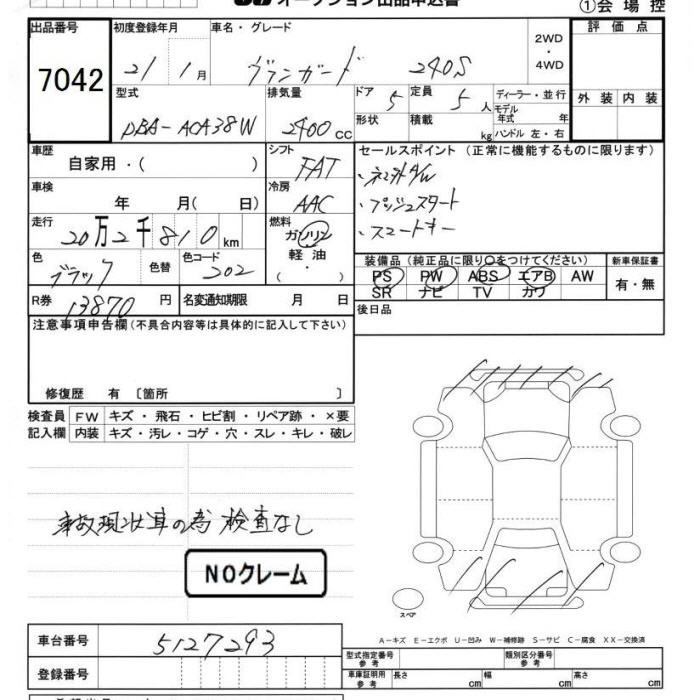 オークション出品申込書
①会場控
出品番号
7042
初度登録年月 21/1月
車名・グレード ヴァンガード 240S
2WD・4WD
評価点
型式 DBA-ACA38W
排気量 2400cc
ドア 5
定員 5人
形状
積載 kg
ディーラー・並行
モデル年式 年
ハンドル 左・右
外装 内装
車歴 自家用・( )
シフト FAT
セールスポイント (正常に機能するものに限ります)
車検 年 月( 日)
冷房 AAC
・プッシュスタート
・スマートキー
走行 20万2千810km
燃料 ガソリン 軽油 ( ・ )
色 ブラック
色替
色コード 202
装備品 (純正品に限り○をつけてください)
新車保証書
PS PW ABS エアB AW
SR ナビ TV カワ
有・無
R券 13870円
名変通知期限 月 日
後日品
注意事項申告欄(不具合内容等は具体的に記入して下さい)
修復歴 有 〔箇所 〕
検査員記入欄
FW キズ・飛石・ヒビ割・リペア跡・×要
内装 キズ・汚レ・コゲ・穴・スレ・キレ・破レ
事故現状車の為 検査なし
NOクレーム
スペア
A-キズ E-エクボ U-凹み W-補修跡 S-サビ C-腐食 XX-交換済
車台番号 5127293
登録番号
型式指定番号 参考
類別区分番号 参考
車庫証明用 参考
長さ cm 幅 cm 高さ cm